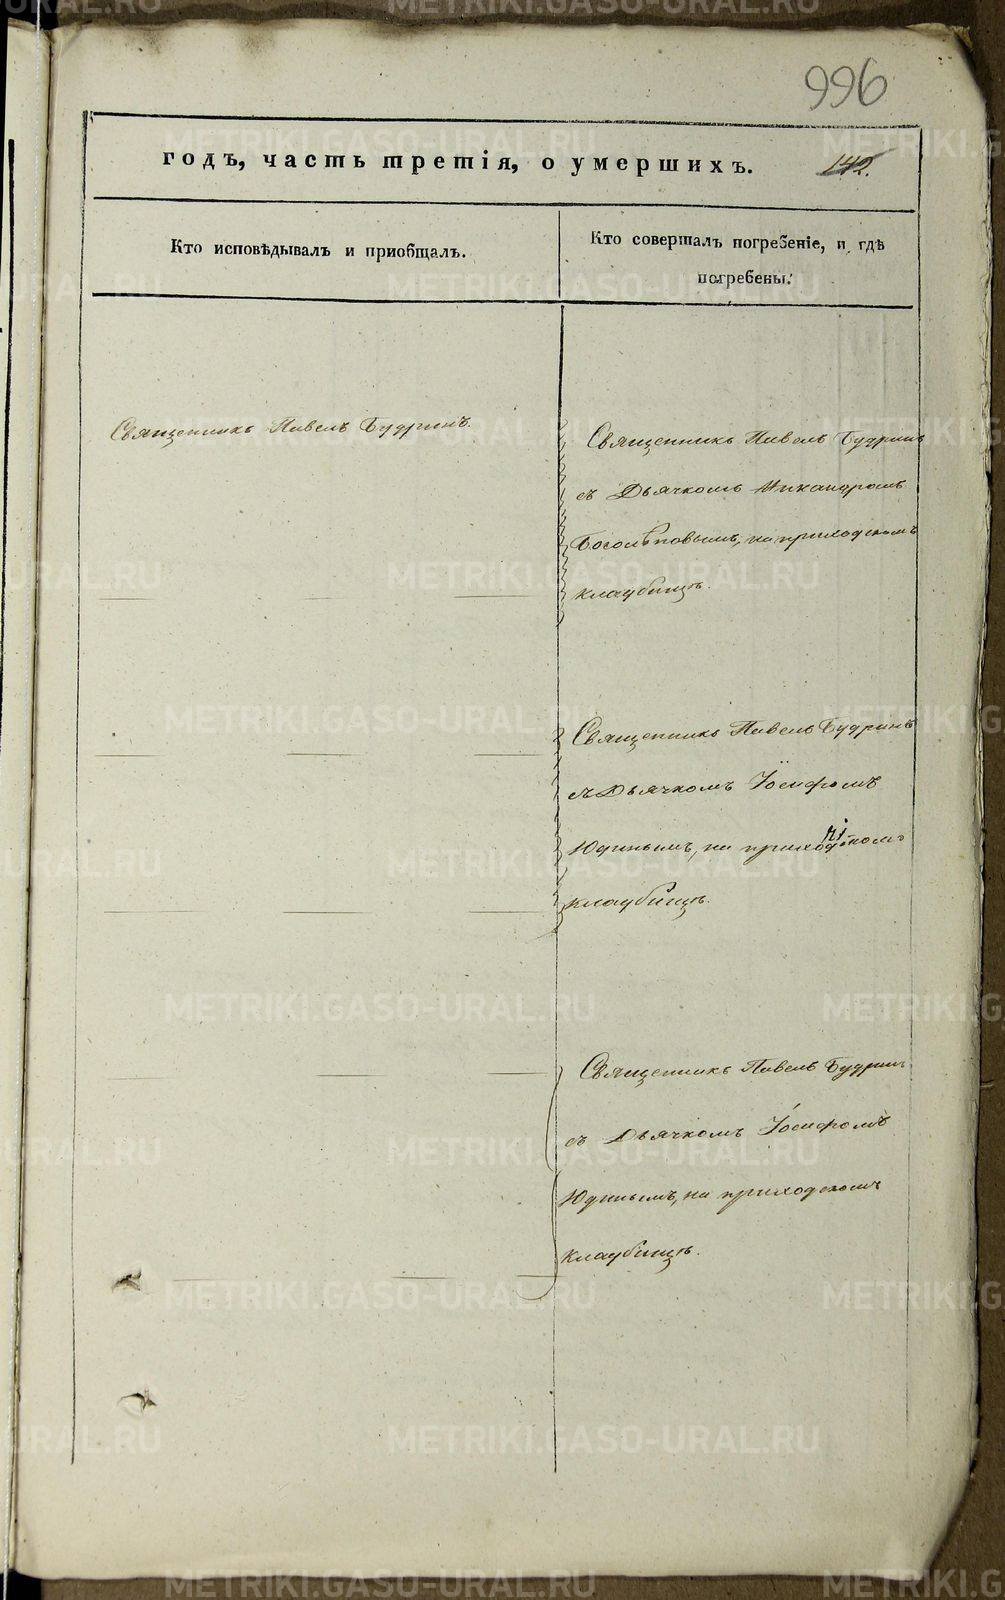 996
годъ, часть третія, о умершихъ.
142.
Кто исповѣдывалъ и приобщалъ.
Кто совершалъ погребеніе, и гдѣ
погребены.
Священникъ Павелъ Будринъ.
Священникъ Павелъ Будринъ
съ Дьячкомъ Никандромъ
Боголѣповымъ, на приходскомъ
кладбищѣ.
Священникъ Павелъ Будринъ
съ Дьячкомъ Іосифомъ
Юдинымъ, на приходскомъ
кладбищѣ.
Священникъ Павелъ Будринъ
съ Дьячкомъ Іосифомъ
Юдинымъ, на приходскомъ
кладбищѣ.
METRIKI.GASO-URAL.RU